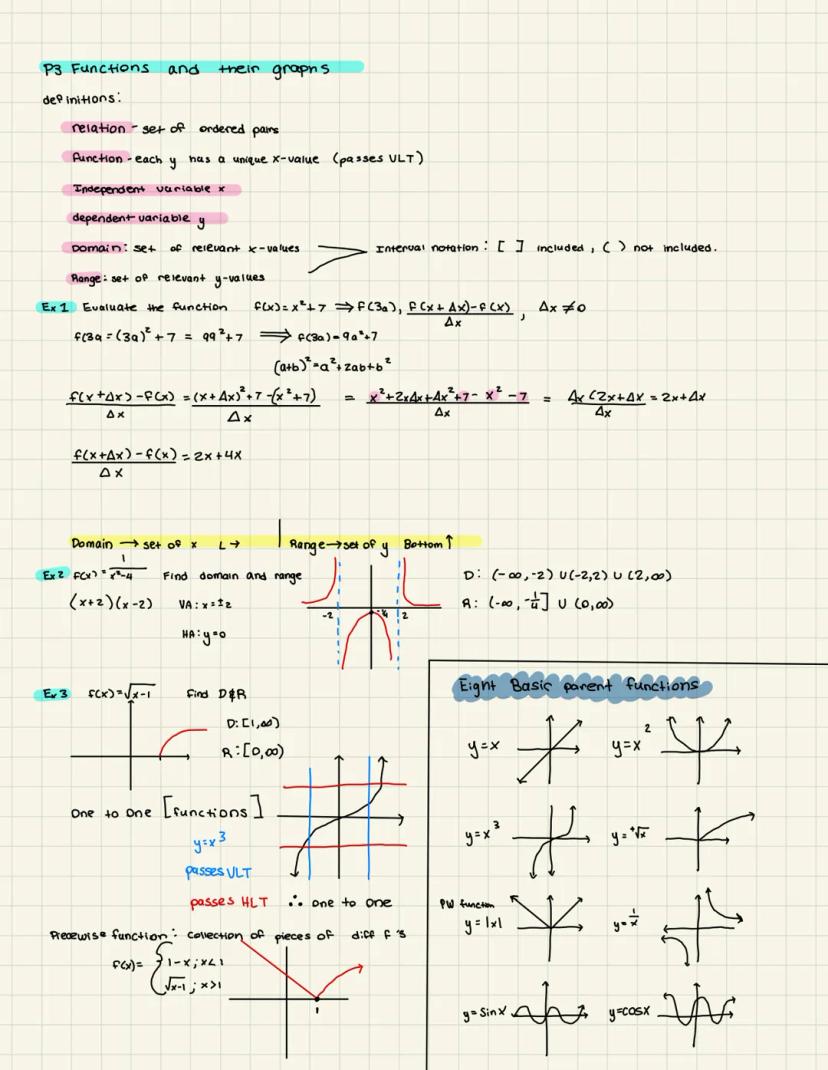 P3 Functions and their graphs
definitions:
relation - set of ordered pairs
function - each y has a unique x-value (passes VLT)
Independent variable x
dependent variable y
Domain: set of relevant x-values
Interval notation: [ ] included, ( ) not included.
Range: set of relevant y-values
Ex 1 Evaluate the function f(x)=x²+7 ⟹ f(3a), f(x+Δx)-f(x)/Δx, Δx≠0
f(3a = (3a)² + 7 = 99²+7 ⟹ f(3a)=9a²+7
(a+b)²=a²+2ab+b²
f(x+Δx)-f(x)/Δx = (x+Δx)²+7-(x²+7)/Δx = x²+2xΔx+Δx²+7-x²-7/Δx = Δx(2x+Δx/Δx = 2x+Δx
f(x+Δx)-f(x)/Δx = 2x+4x
Domain → set of x L→ | Range → set of y Bottom ↑
Ex 2 f(x) = 1/x²-4 Find domain and range
D: (-∞,-2) ∪ (-2,2) ∪ (2,∞)
(x+2)(x-2) VA: x=±2
-2 -¼ 2
R: (-∞, -¼] ∪ (0,∞)
HA: y=0
Ex 3 f(x)=√x-1 Find D&R
D: [1,∞)
R: [0,∞)
One to One [functions]
y=x³
passes VLT
passes HLT ∴ one to one
Piecewise function: collection of pieces of diff f's
f(x)= { 1-x; x<1
√x-1; x>1
1
Eight Basic parent functions
y=x
y=x²
y=x³
y=⁺√x
PW function
y=|x|
y=1/x
y=sinx
y=cosx